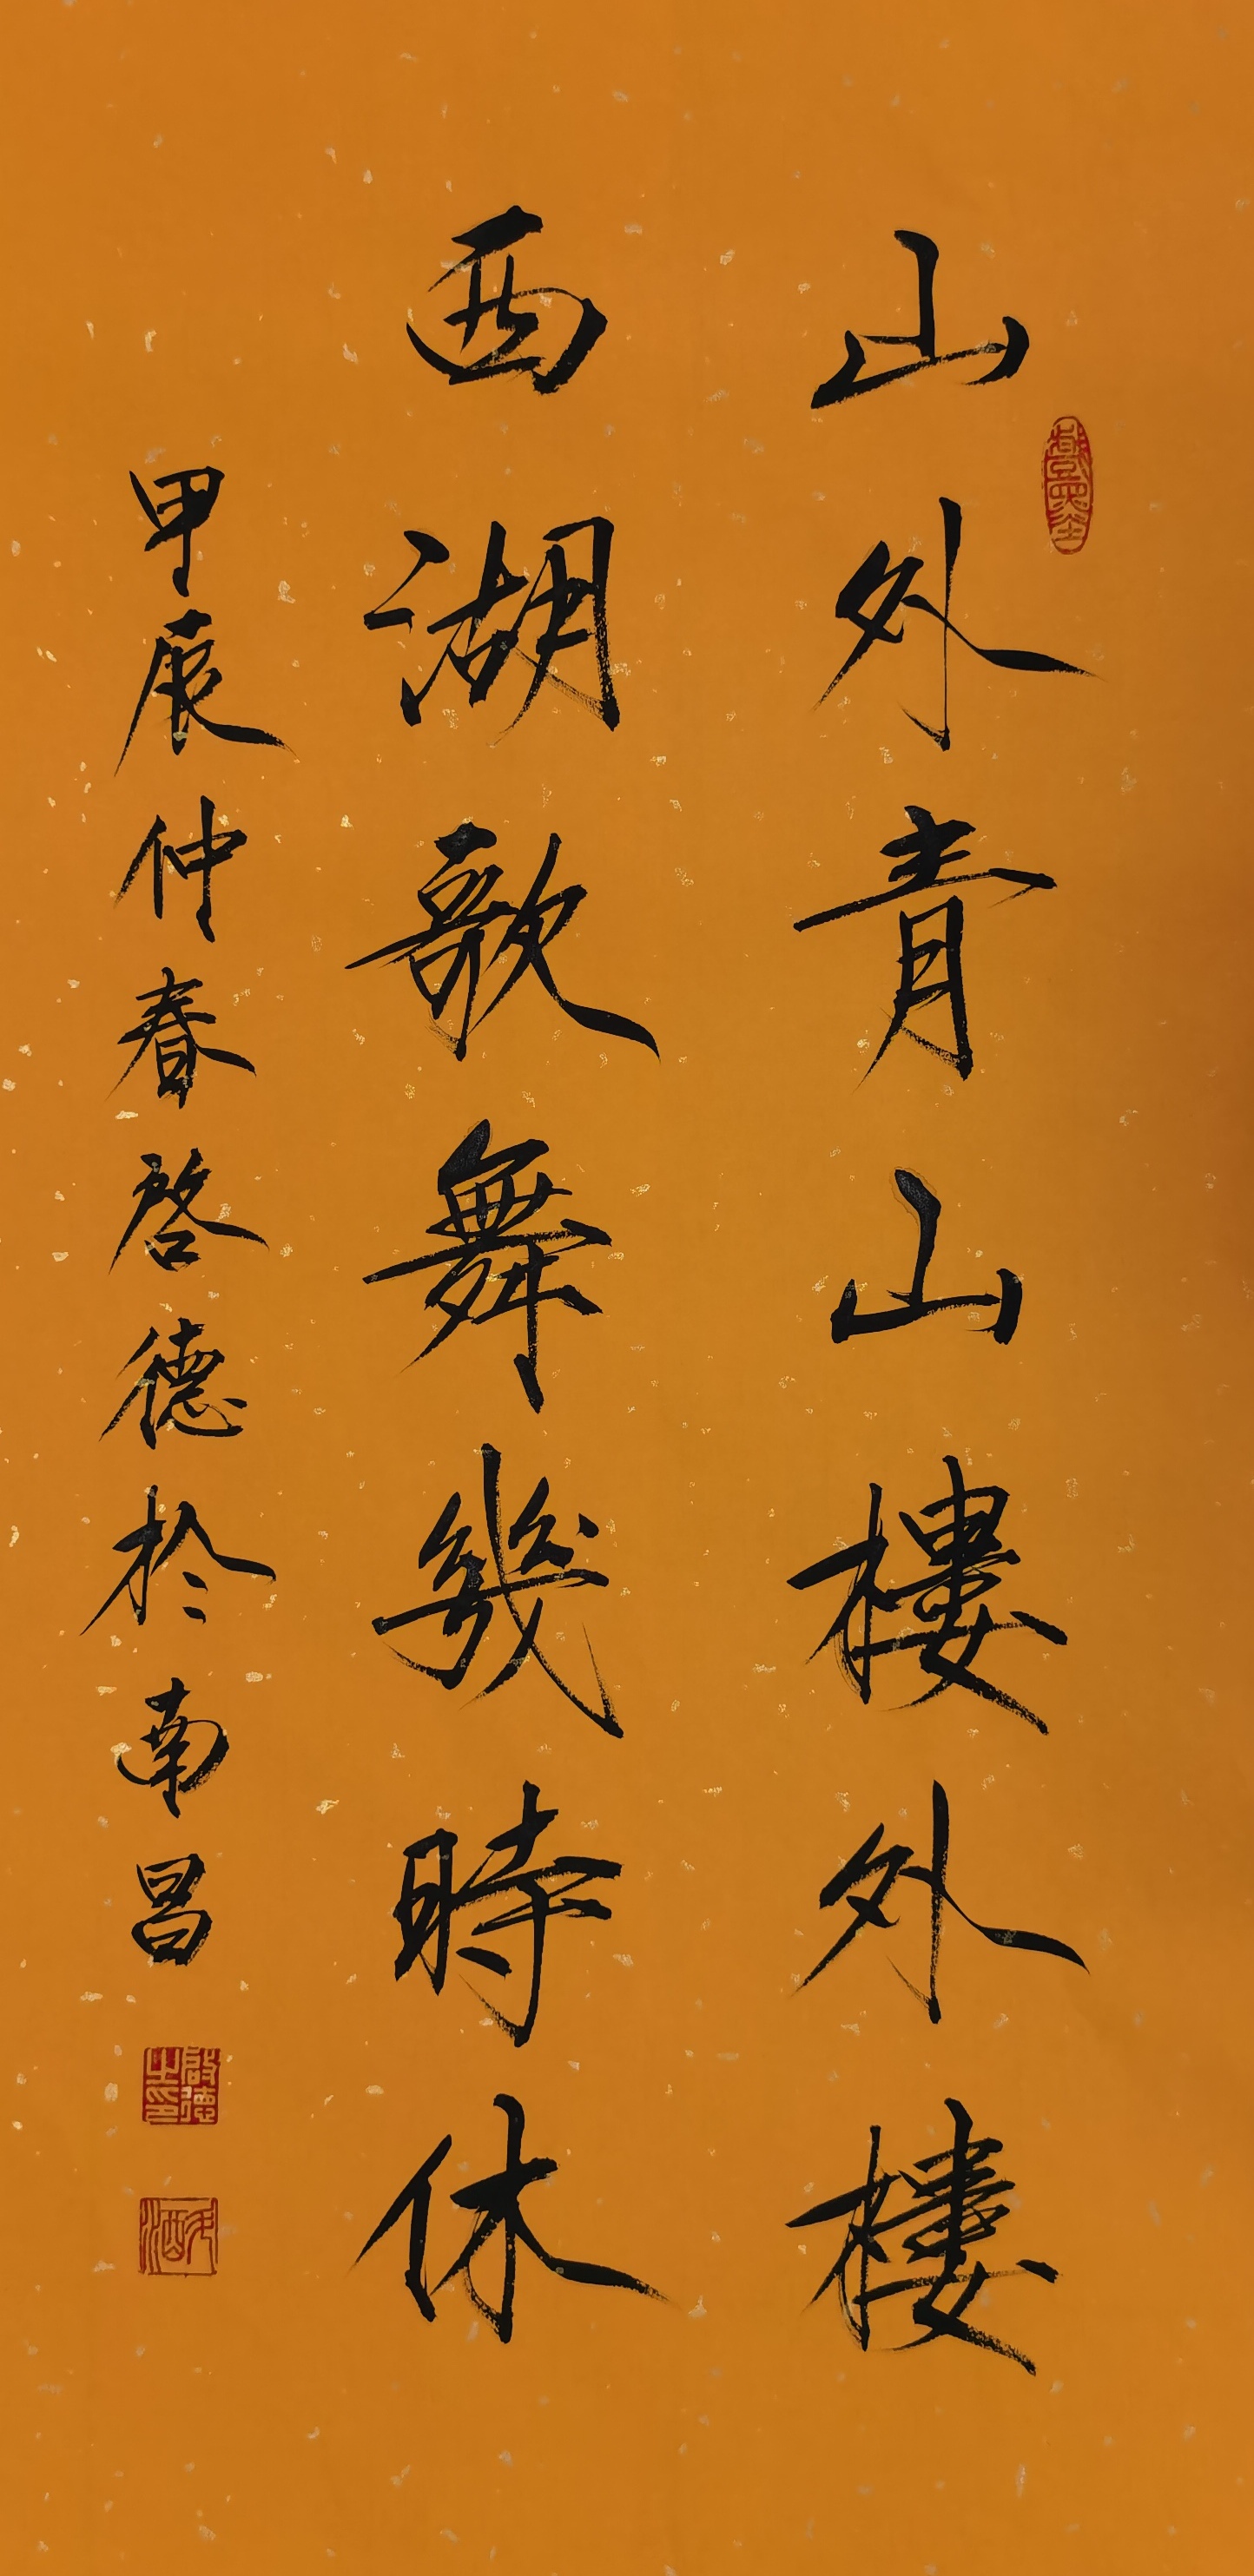 山外青山樓外樓
西湖歌舞幾時休
甲辰仲春啓德於南昌
啟德之印